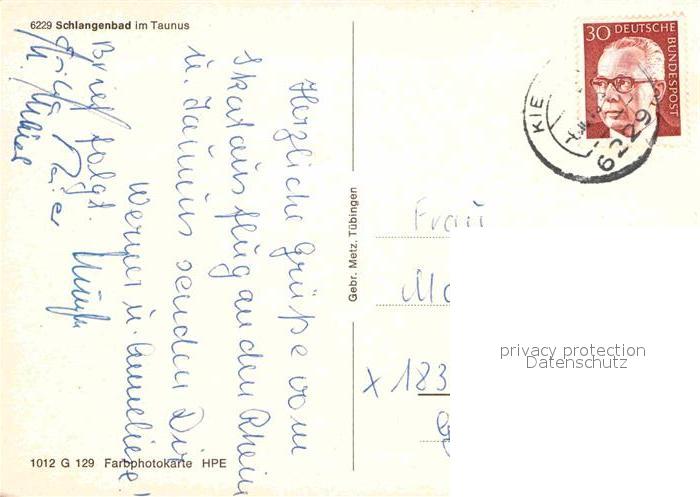 6229 Schlangenbad im Taunus
Herzliche Grüße vom
Skatausflug an den Rhein
u. Taunus senden Dir
Werner u. Anneliese!
Brief folgt.
Gebr. Metz, Tübingen
30 DEUTSCHE
BUNDESPOST
KIE
6229
Frau
x 183
privacy protection
Datenschutz
1012 G 129 Farbphotokarte HPE